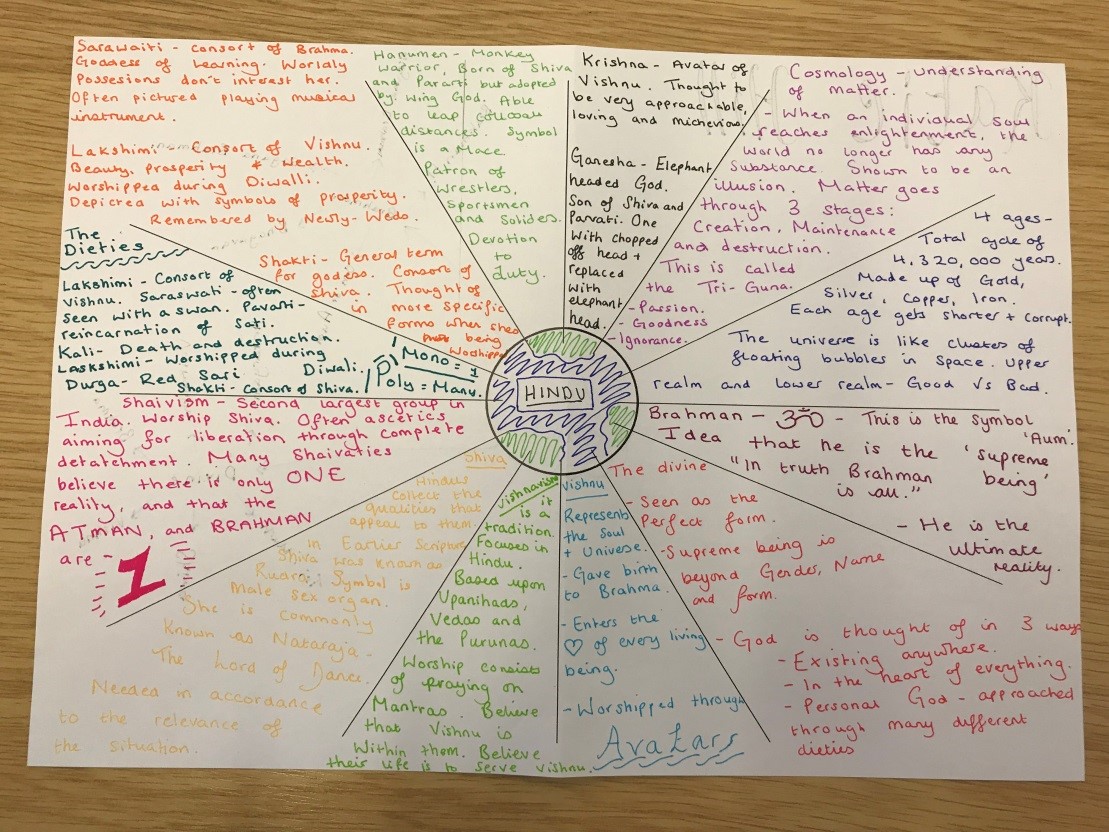 Sarawaiti - consort of Brahma.
Goddess of Learning. Worldly
Possesions don't interest her.
Often pictured playing musical
instrument.
Lakshimi - Consort of Vishnu.
Beauty, prosperity & Wealth.
Worshipped during Diwalli.
Depicted with symbols of prosperity.
Remembered by Newly-Weds.
Hanumen - Monkey
Warrior, Born of Shiva
and Pararti but adopted
by Wing God. Able
to leap
distances. Symbol
is a Mace
Patron of
Wrestlers,
Sportsmen
and Soliders.
Devotion
to
duty.
Krishna - Avatar of
Vishnu. Thought to
be very approachable,
loving and micheviou.
Ganesha - Elephant
headed God.
Son of Shiva and
Parvati. One
With chopped
off head +
replaced
with
elephant
head.
Cosmology - Understanding
of matter.
- When an individual soul
reaches enlightenment, the
World no longer has any
Substance. Shown to be an
illusion. Matter goes
through 3 stages:
Creation, Maintenance
and destruction.
This is called
the Tri-Guna.
- Passion.
- Goodness
- Ignorance.
4 ages-
Total cycle of
4,320,000 years.
Made up of Gold,
Silver, Copper, Iron.
Each age gets shorter + corrupt.
The universe is like cluster of
floating bubbles in Space. Upper
realm and lower realm - Good Vs Bad.
Brahman - ॐ - This is the symbol
'Aum'.
Idea that he is the 'supreme
being'
"In truth Brahman
is all."
- He is the
ultimate
reality.
The divine
- Seen as the
Perfect form.
- Supreme being is
beyond Gender, Name
and form.
- God is thought of in 3 ways
- Existing anywhere.
- In the heart of everything.
- Personal God - approached
through many different
dieties
Vishnu
Represents
the Soul
+ Universe.
- Gave birth
to Brahma.
- Enters the
♡ of every living
being.
- Worshipped through
Avatars
Vishnavism
it
is a
tradition.
Focuses in
Hindu.
Based upon
Upanihads,
Vedas and
the Purunas.
Worship consists
of praying on
Mantras. Believe
that Vishnu is
Within them. Believe
their life is to serve Vishnu.
Shiva
Hindus
Collect the
qualities that
appeal to them.
in Earlier Scripture
Shiva was known as
Ruara. Symbol is
Male sex organ.
She is commonly
Known as Nataraja -
The Lord of Dance.
Needed in accordance
to the relevance of
the situation.
Shaivism - Second largest group in
India. Worship Shiva. Often ascetics
aiming for liberation through complete
detatchment. Many Shaivaties
believe there is only ONE
reality, and that the
ATMAN, and BRAHMAN
are - 1
The
Dieties
Lakshimi - Consort of
Vishnu. Saraswati - often
seen with a swan. Pavati -
reincarnation of Sati.
Kali - Death and destruction.
Laskshimi - Worshipped during
Diwali.
Durga - Red Sari
Shakti - Consort of Shiva.
Mono = 1
Poly = Many
Shakti - General term
for godess. Consort of
Shiva. Thought of
in more specific
forms when shes
being
Worshipped
HINDU